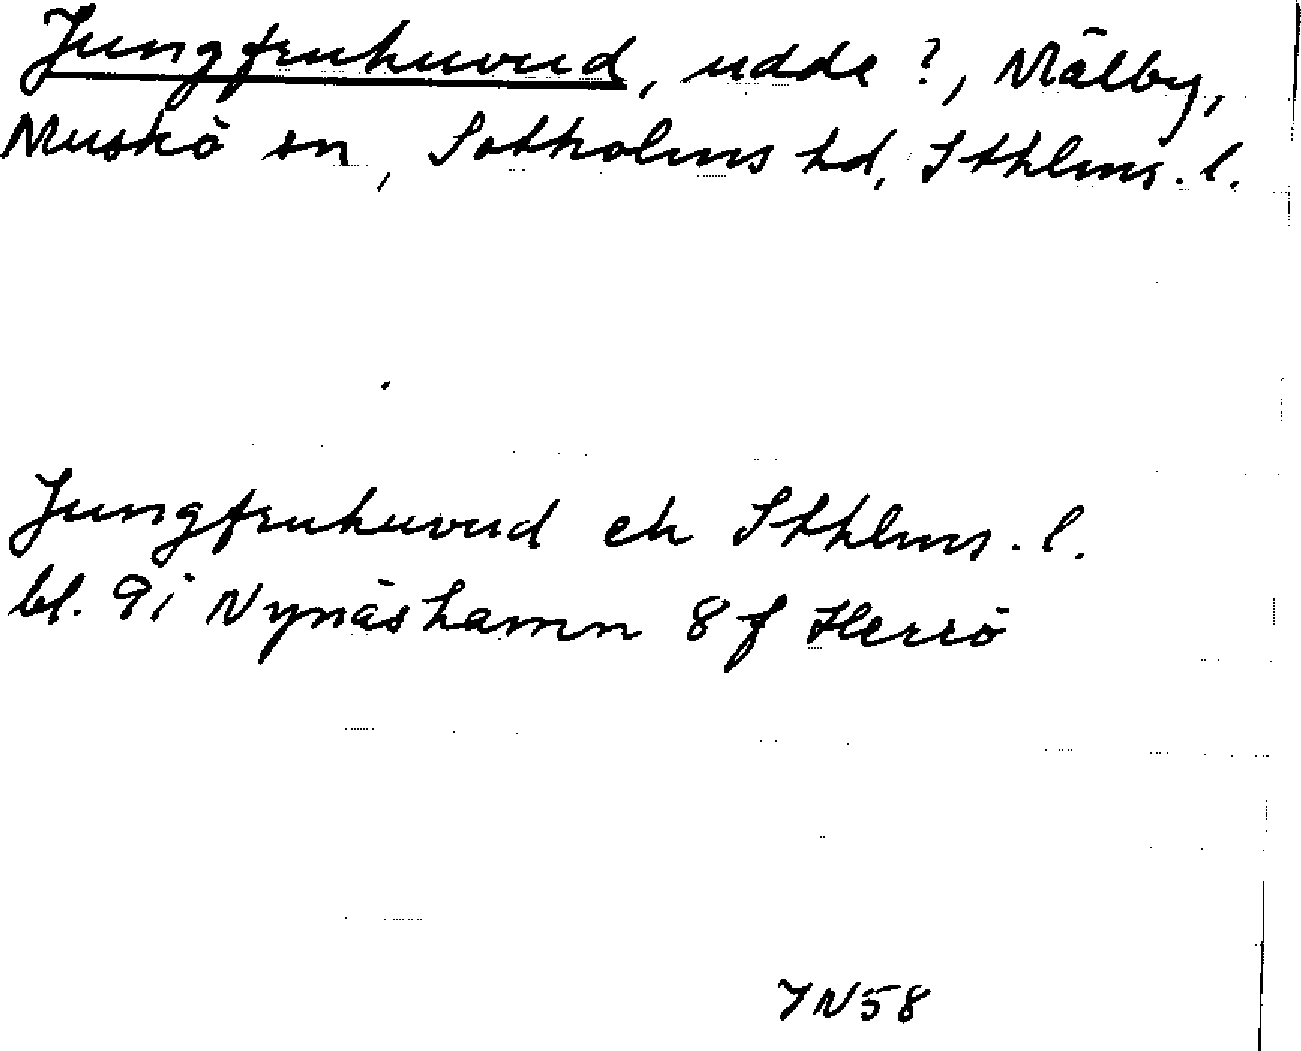 Jungfruhuvud, udde?, Mälby,
Muskö sn, Sotholms hd, Sthlms. l.
Jungfruhuvud ek Sthlms. l.
bl. 9i Nynäshamn 8f Herrö
YN58